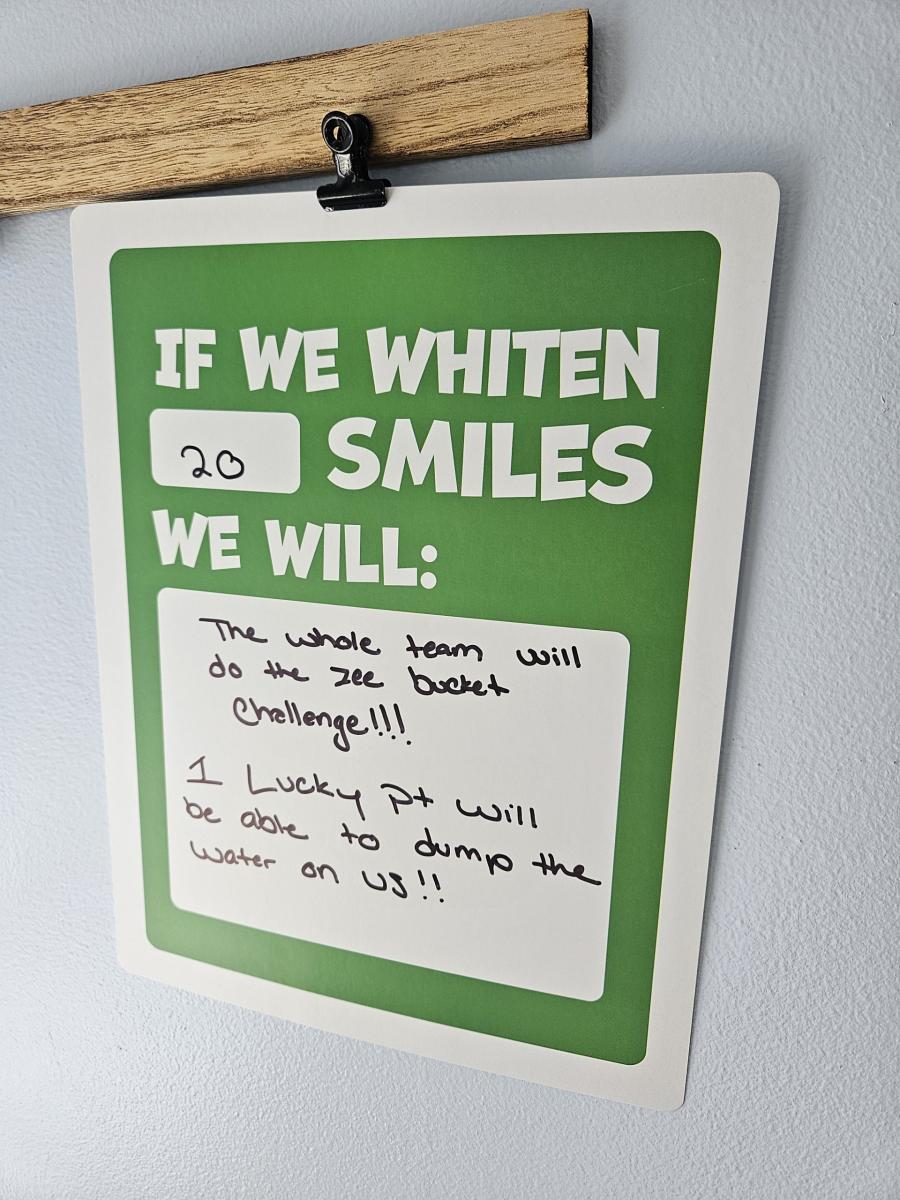 IF WE WHITEN
20 SMILES
WE WILL:
The whole team will
do the Ice bucket
Challenge!!!
1 Lucky Pt will
be able to dump the
water on us!!